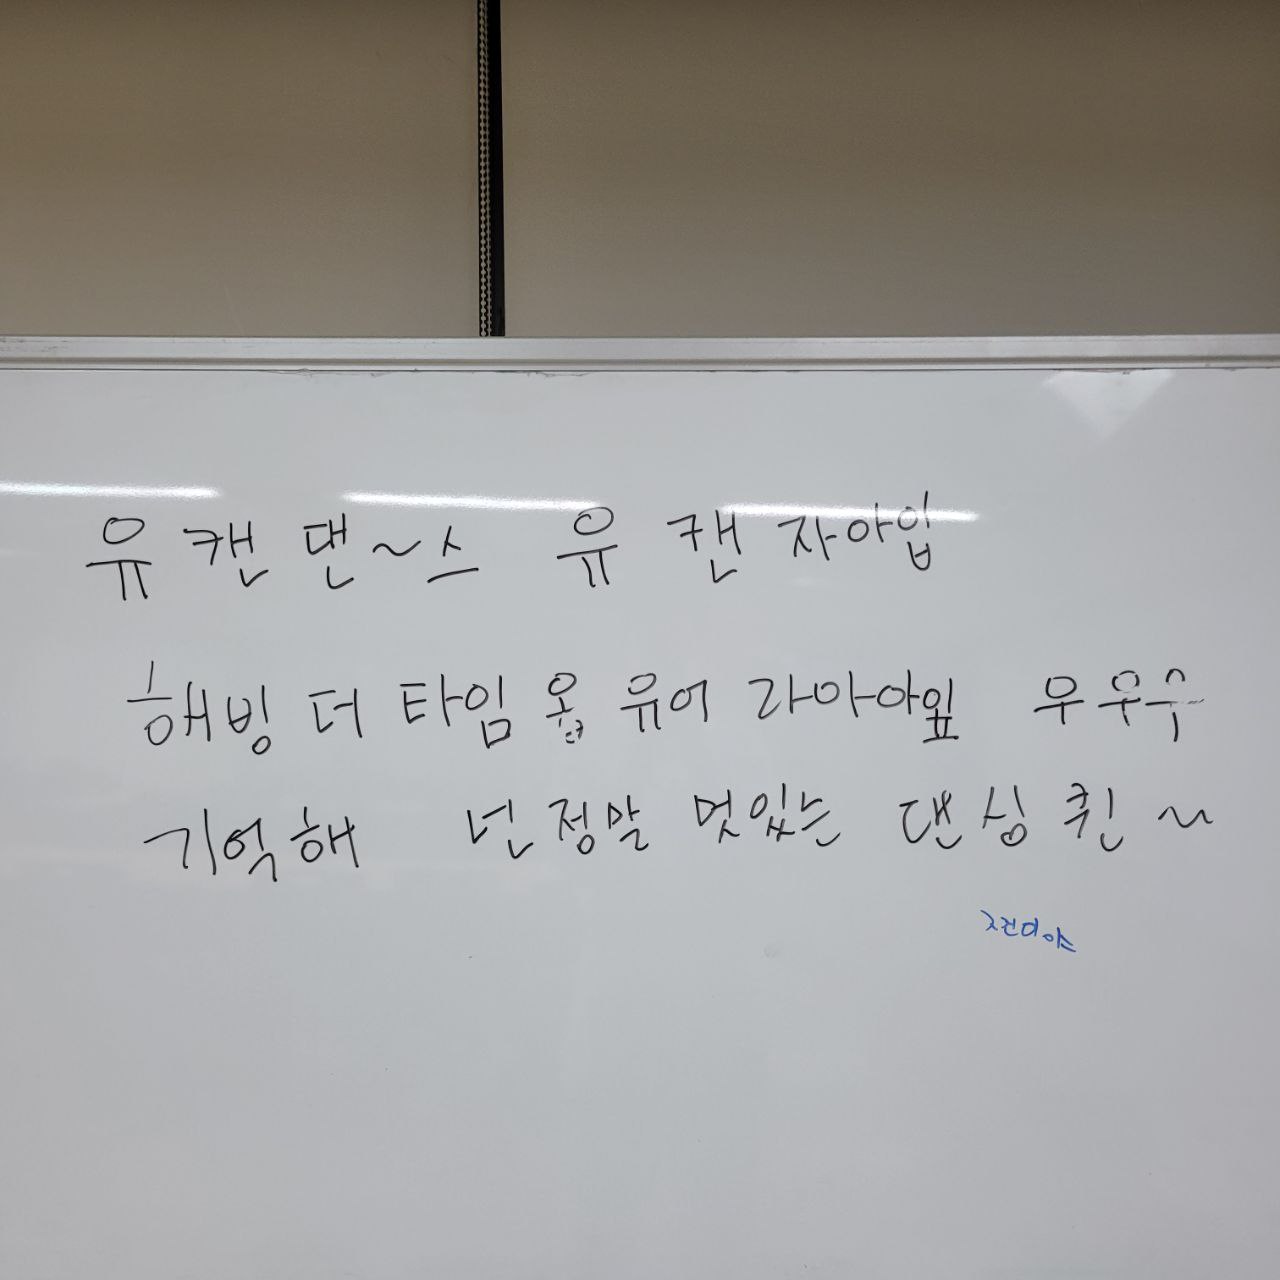 유 캔 댄~스 유 캔 자아입
해빙 더 타임 옵 유어 라아아잎 우우우
기억해 넌 정말 멋있는 댄싱 퀸~